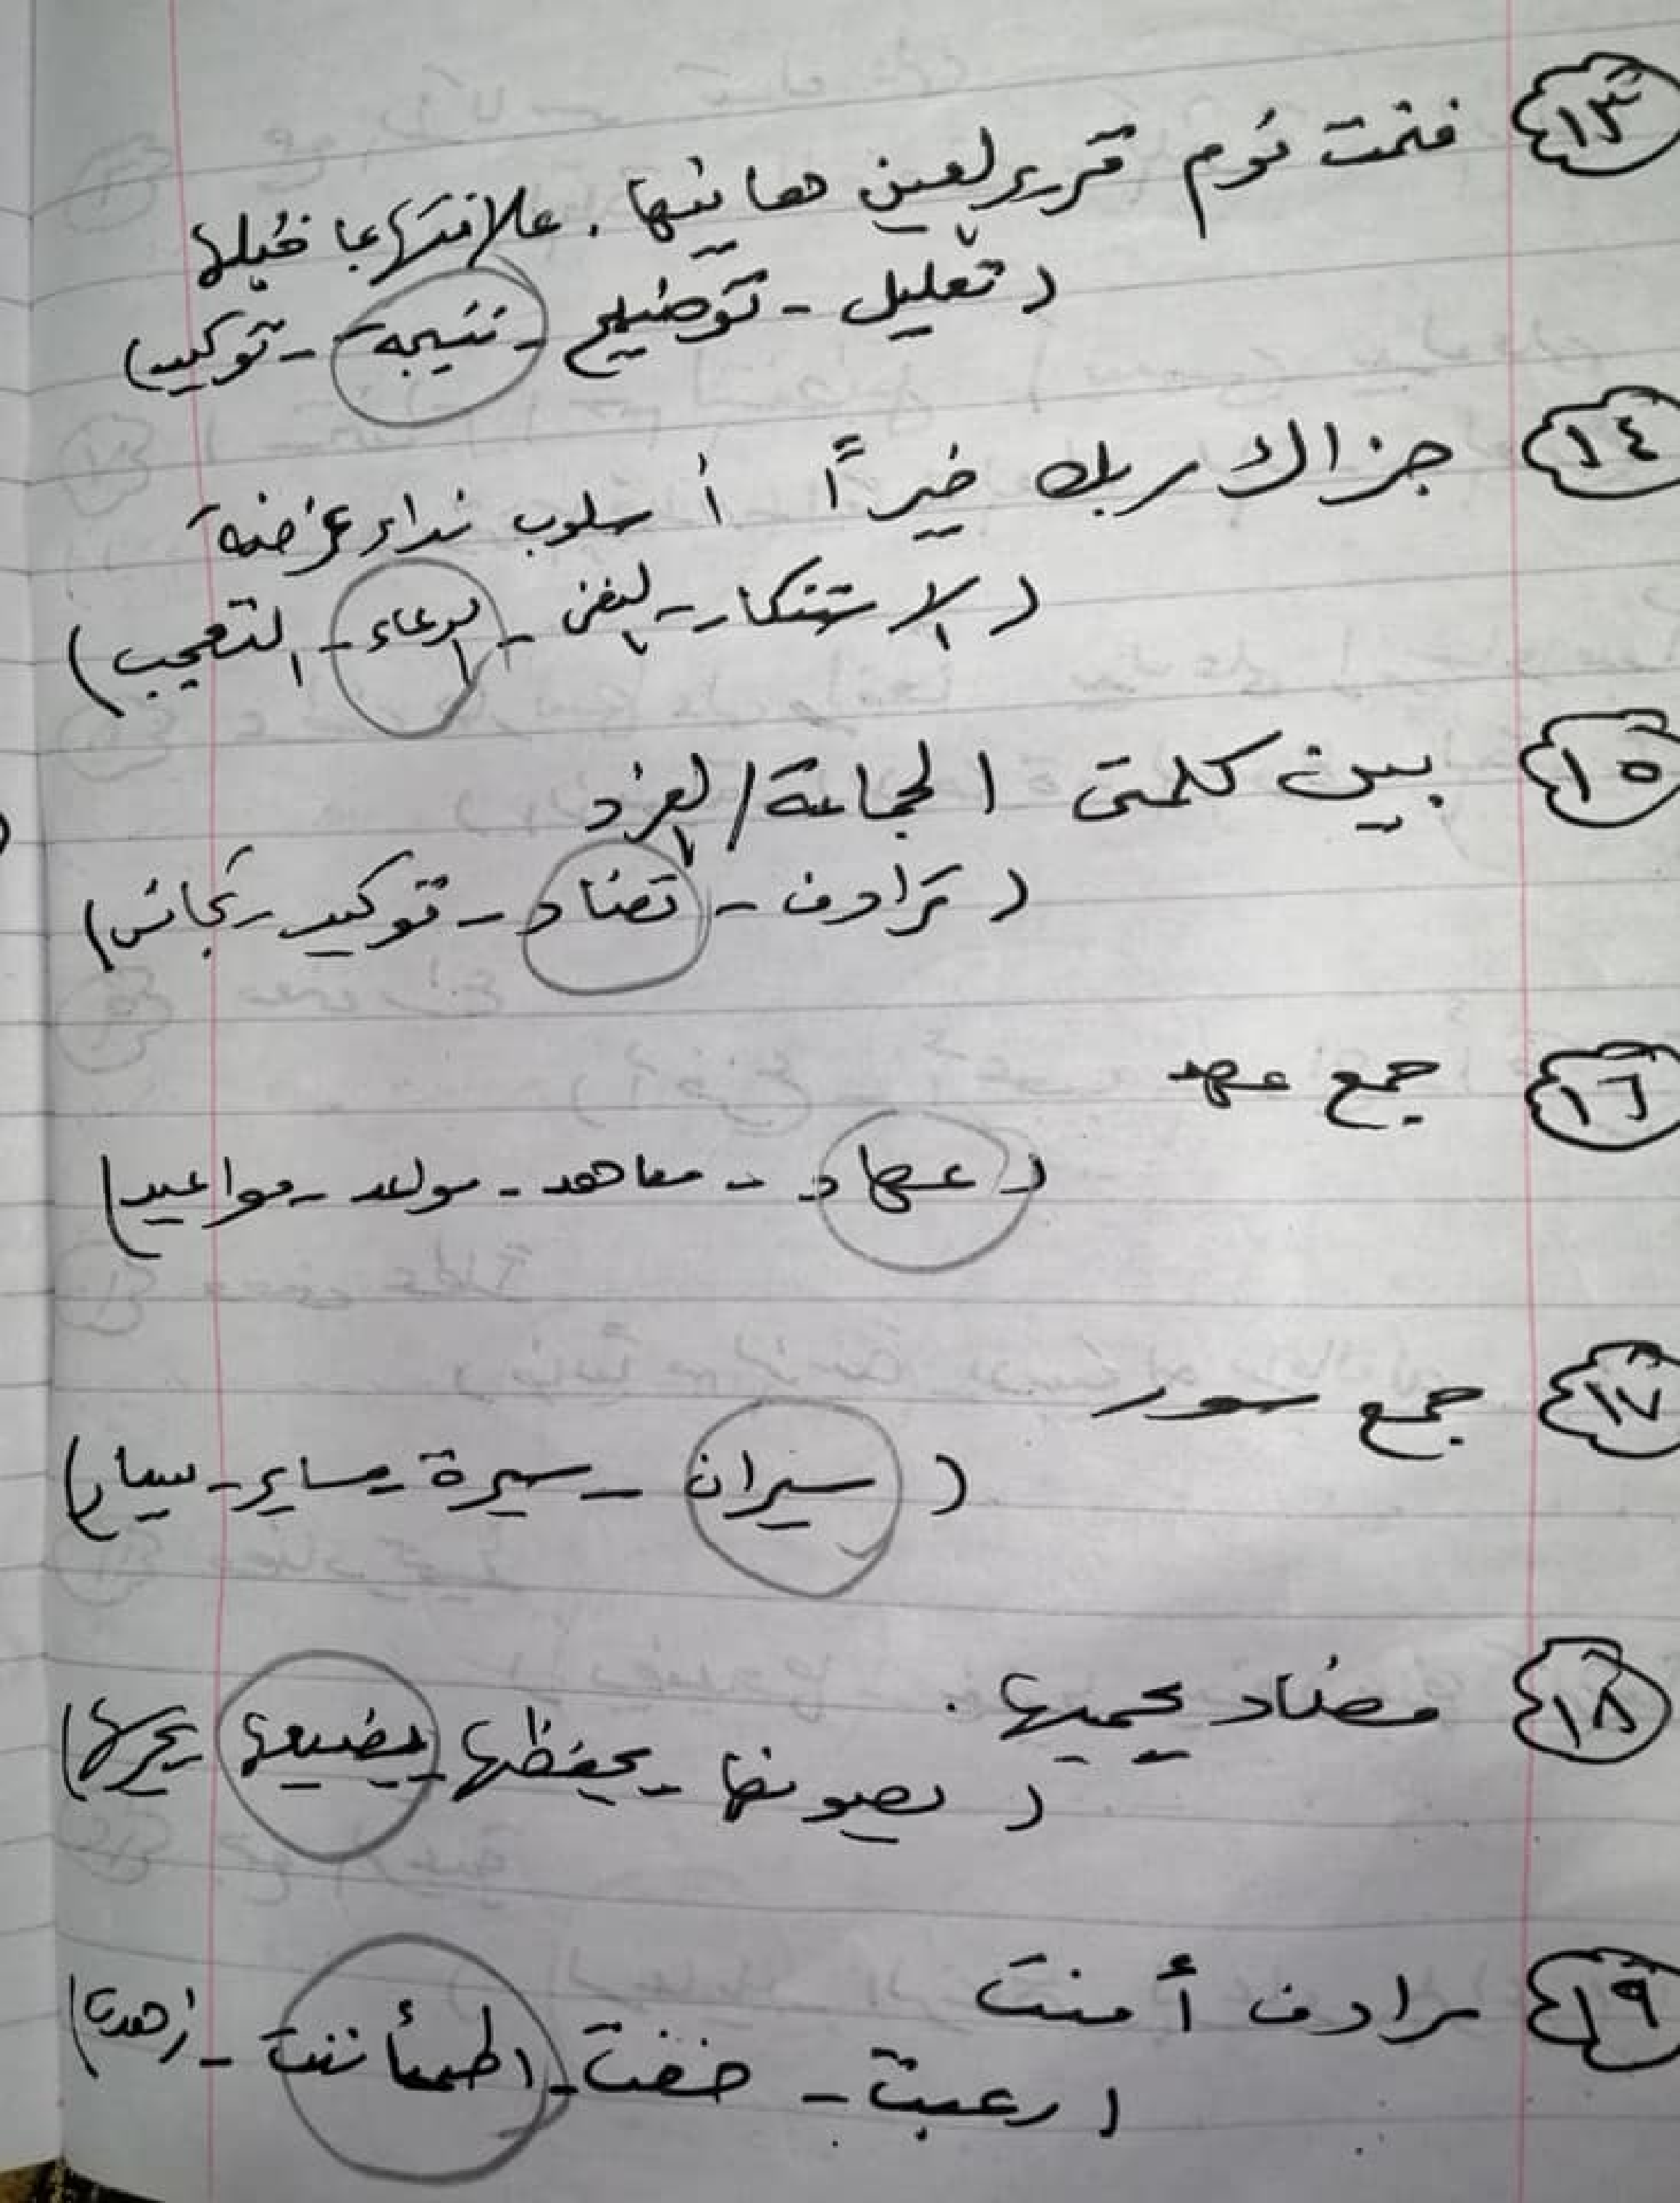 ١٣ فنمت نوم قرير العين هانيها . علاقتها بما قبلها
( تعليل - توضيح - نتيجه - توكيد )
١٤ جزاك ربك خيراً أسلوب نداء غرضة
( الاستنكار - النفى - الدعاء - التعجب )
١٥ بين كلمتى الجماعة / الفرد
( ترادف - تضاد - توكيد - تجانس )
١٦ جمع عهد
( عهاد - معاهد - مولعد - مواعيد )
١٧ جمع سور
( سيران - سيرة - مساير - سيار )
١٨ مضاد يحميها .
( يصونها - يحفظها - يضيعها يحرسها )
١٩ مرادف أمنت
( رعبت - خفت - اطمأننت - زهدت )